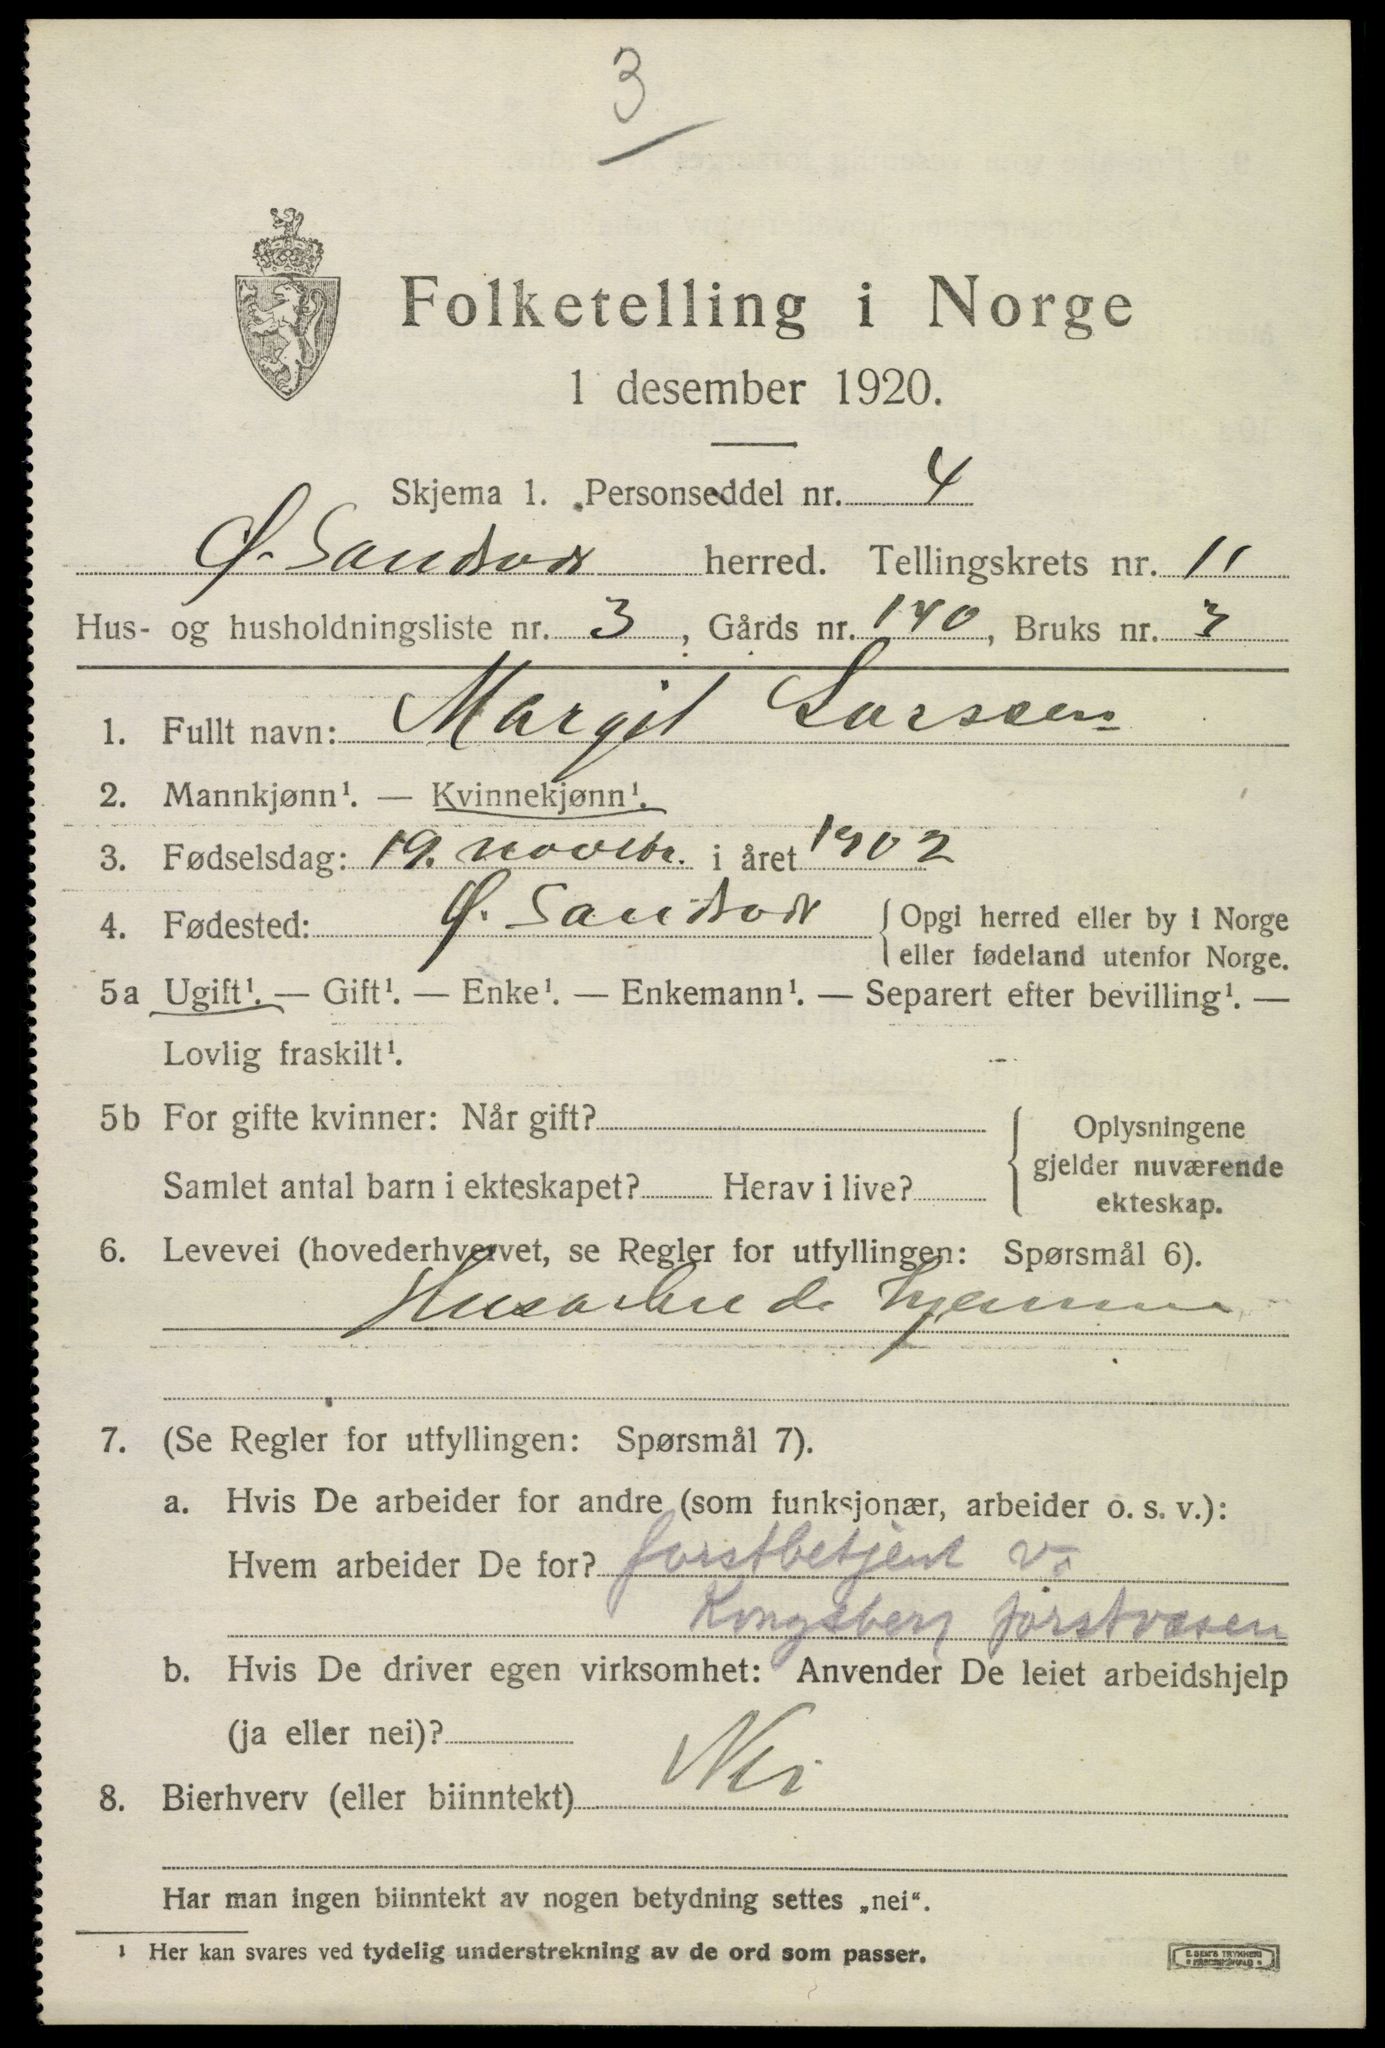 3
Folketelling i Norge
1 desember 1920.
Skjema 1. Personseddel nr. 4
Ø. Sandsvær herred. Tellingskrets nr. 11
Hus- og husholdningsliste nr. 3, Gårds nr. 140, Bruks nr. 3
1. Fullt navn: Margit Larssen
2. Mannkjønn¹. — Kvinnekjønn¹.
3. Fødselsdag: 19. novbr. i året 1902
4. Fødested: Ø. Sandsvær { Opgi herred eller by i Norge
eller fødeland utenfor Norge.
5a Ugift¹. — Gift¹. — Enke¹. — Enkemann¹. — Separert efter bevilling¹. —
Lovlig fraskilt¹.
5b For gifte kvinner: Når gift?
Samlet antal barn i ekteskapet? Herav i live?
{ Oplysningene
gjelder nuværende
ekteskap.
6. Levevei (hovederhvervet, se Regler for utfyllingen: Spørsmål 6).
Husarbeide hjemme
7. (Se Regler for utfyllingen: Spørsmål 7).
a. Hvis De arbeider for andre (som funksjonær, arbeider o. s. v.):
Hvem arbeider De for? forstbetjent v.
Kongsberg forstvæsen
b. Hvis De driver egen virksomhet: Anvender De leiet arbeidshjelp
(ja eller nei)?
8. Bierhverv (eller biinntekt) Nei
Har man ingen biinntekt av nogen betydning settes „nei“.
¹ Her kan svares ved tydelig understrekning av de ord som passer.